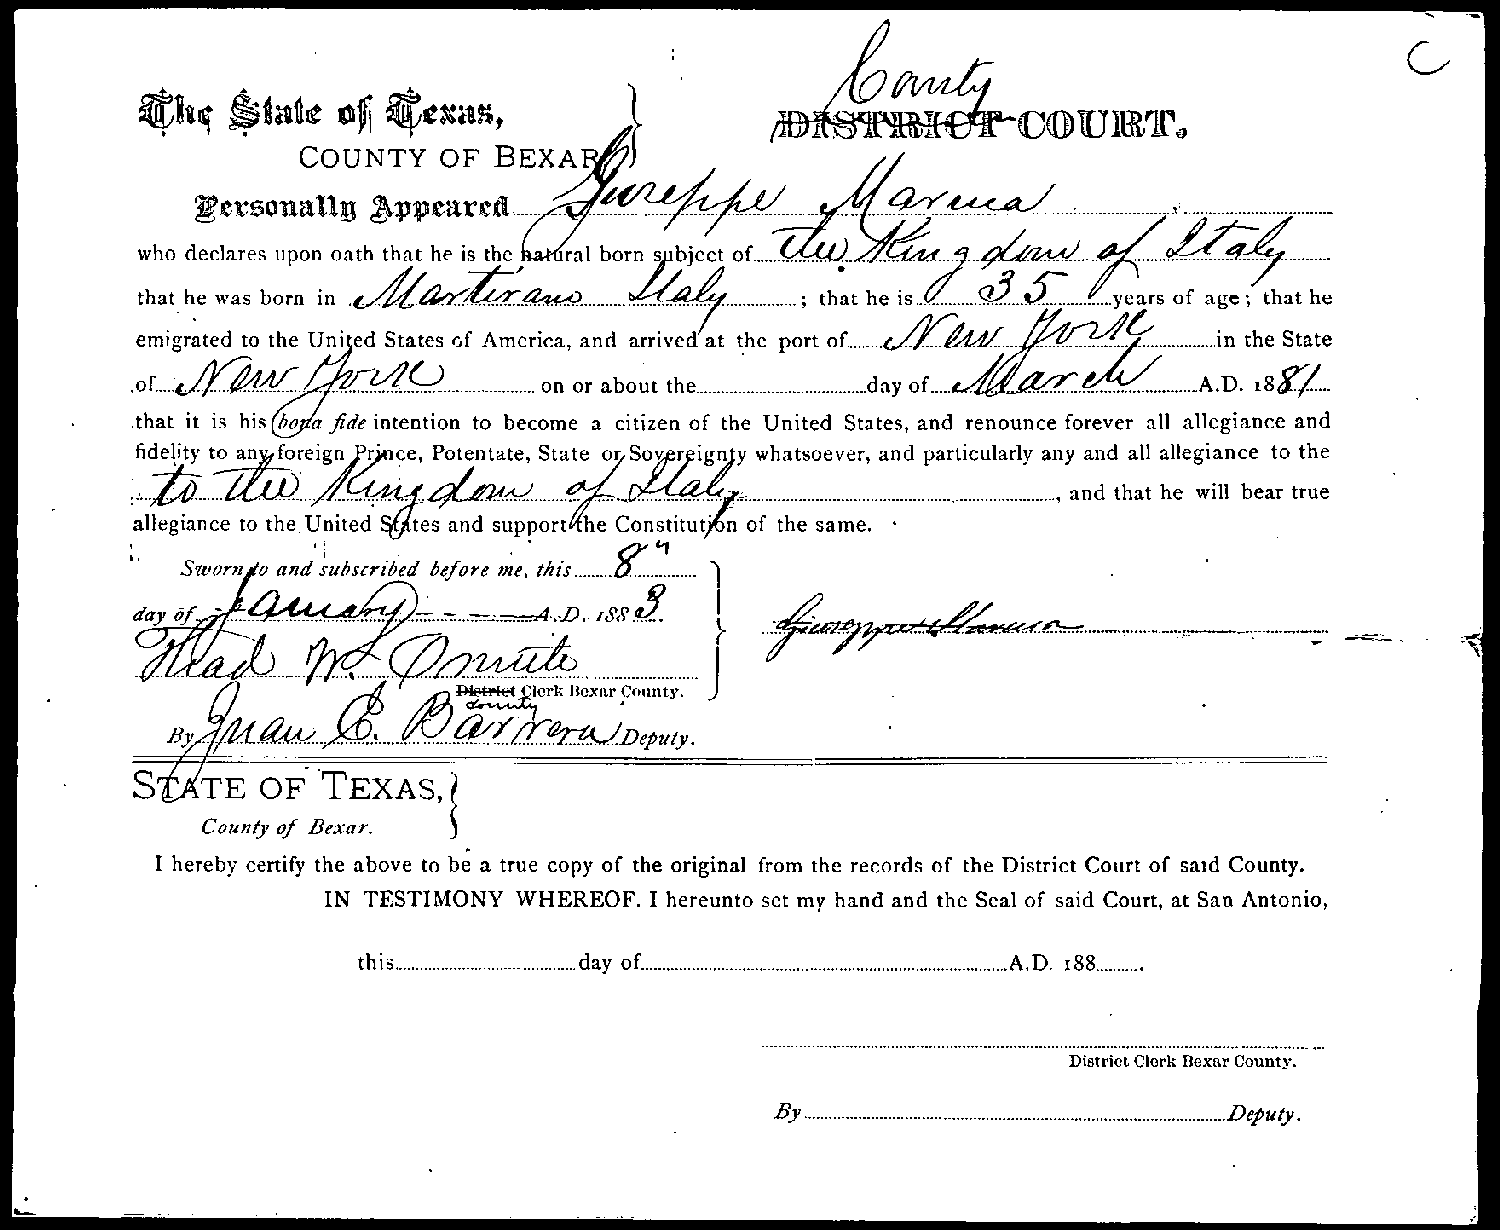 C
County
The State of Texas, } DISTRICT COURT.
COUNTY OF BEXAR
Personally Appeared Giuseppe
who declares upon oath that he is the natural born subject of the Kingdom of Italy
that he was born in Martirano Italy ; that he is 35 years of age; that he
emigrated to the United States of America, and arrived at the port of New York in the State
of New York on or about the day of March A.D. 1881
that it is his bona fide intention to become a citizen of the United States, and renounce forever all allegiance and
fidelity to any foreign Prince, Potentate, State or Sovereignty whatsoever, and particularly any and all allegiance to the
to the Kingdom of Italy , and that he will bear true
allegiance to the United States and support the Constitution of the same.
Sworn to and subscribed before me, this 8"
day of January A.D. 1883
Giuseppe
Thad W.
District Clerk Bexar County.
county
By Juan E. Barrera Deputy.
STATE OF TEXAS, }
County of Bexar.
I hereby certify the above to be a true copy of the original from the records of the District Court of said County.
IN TESTIMONY WHEREOF. I hereunto set my hand and the Seal of said Court, at San Antonio,
this day of A.D. 188
District Clerk Bexar County.
By Deputy.